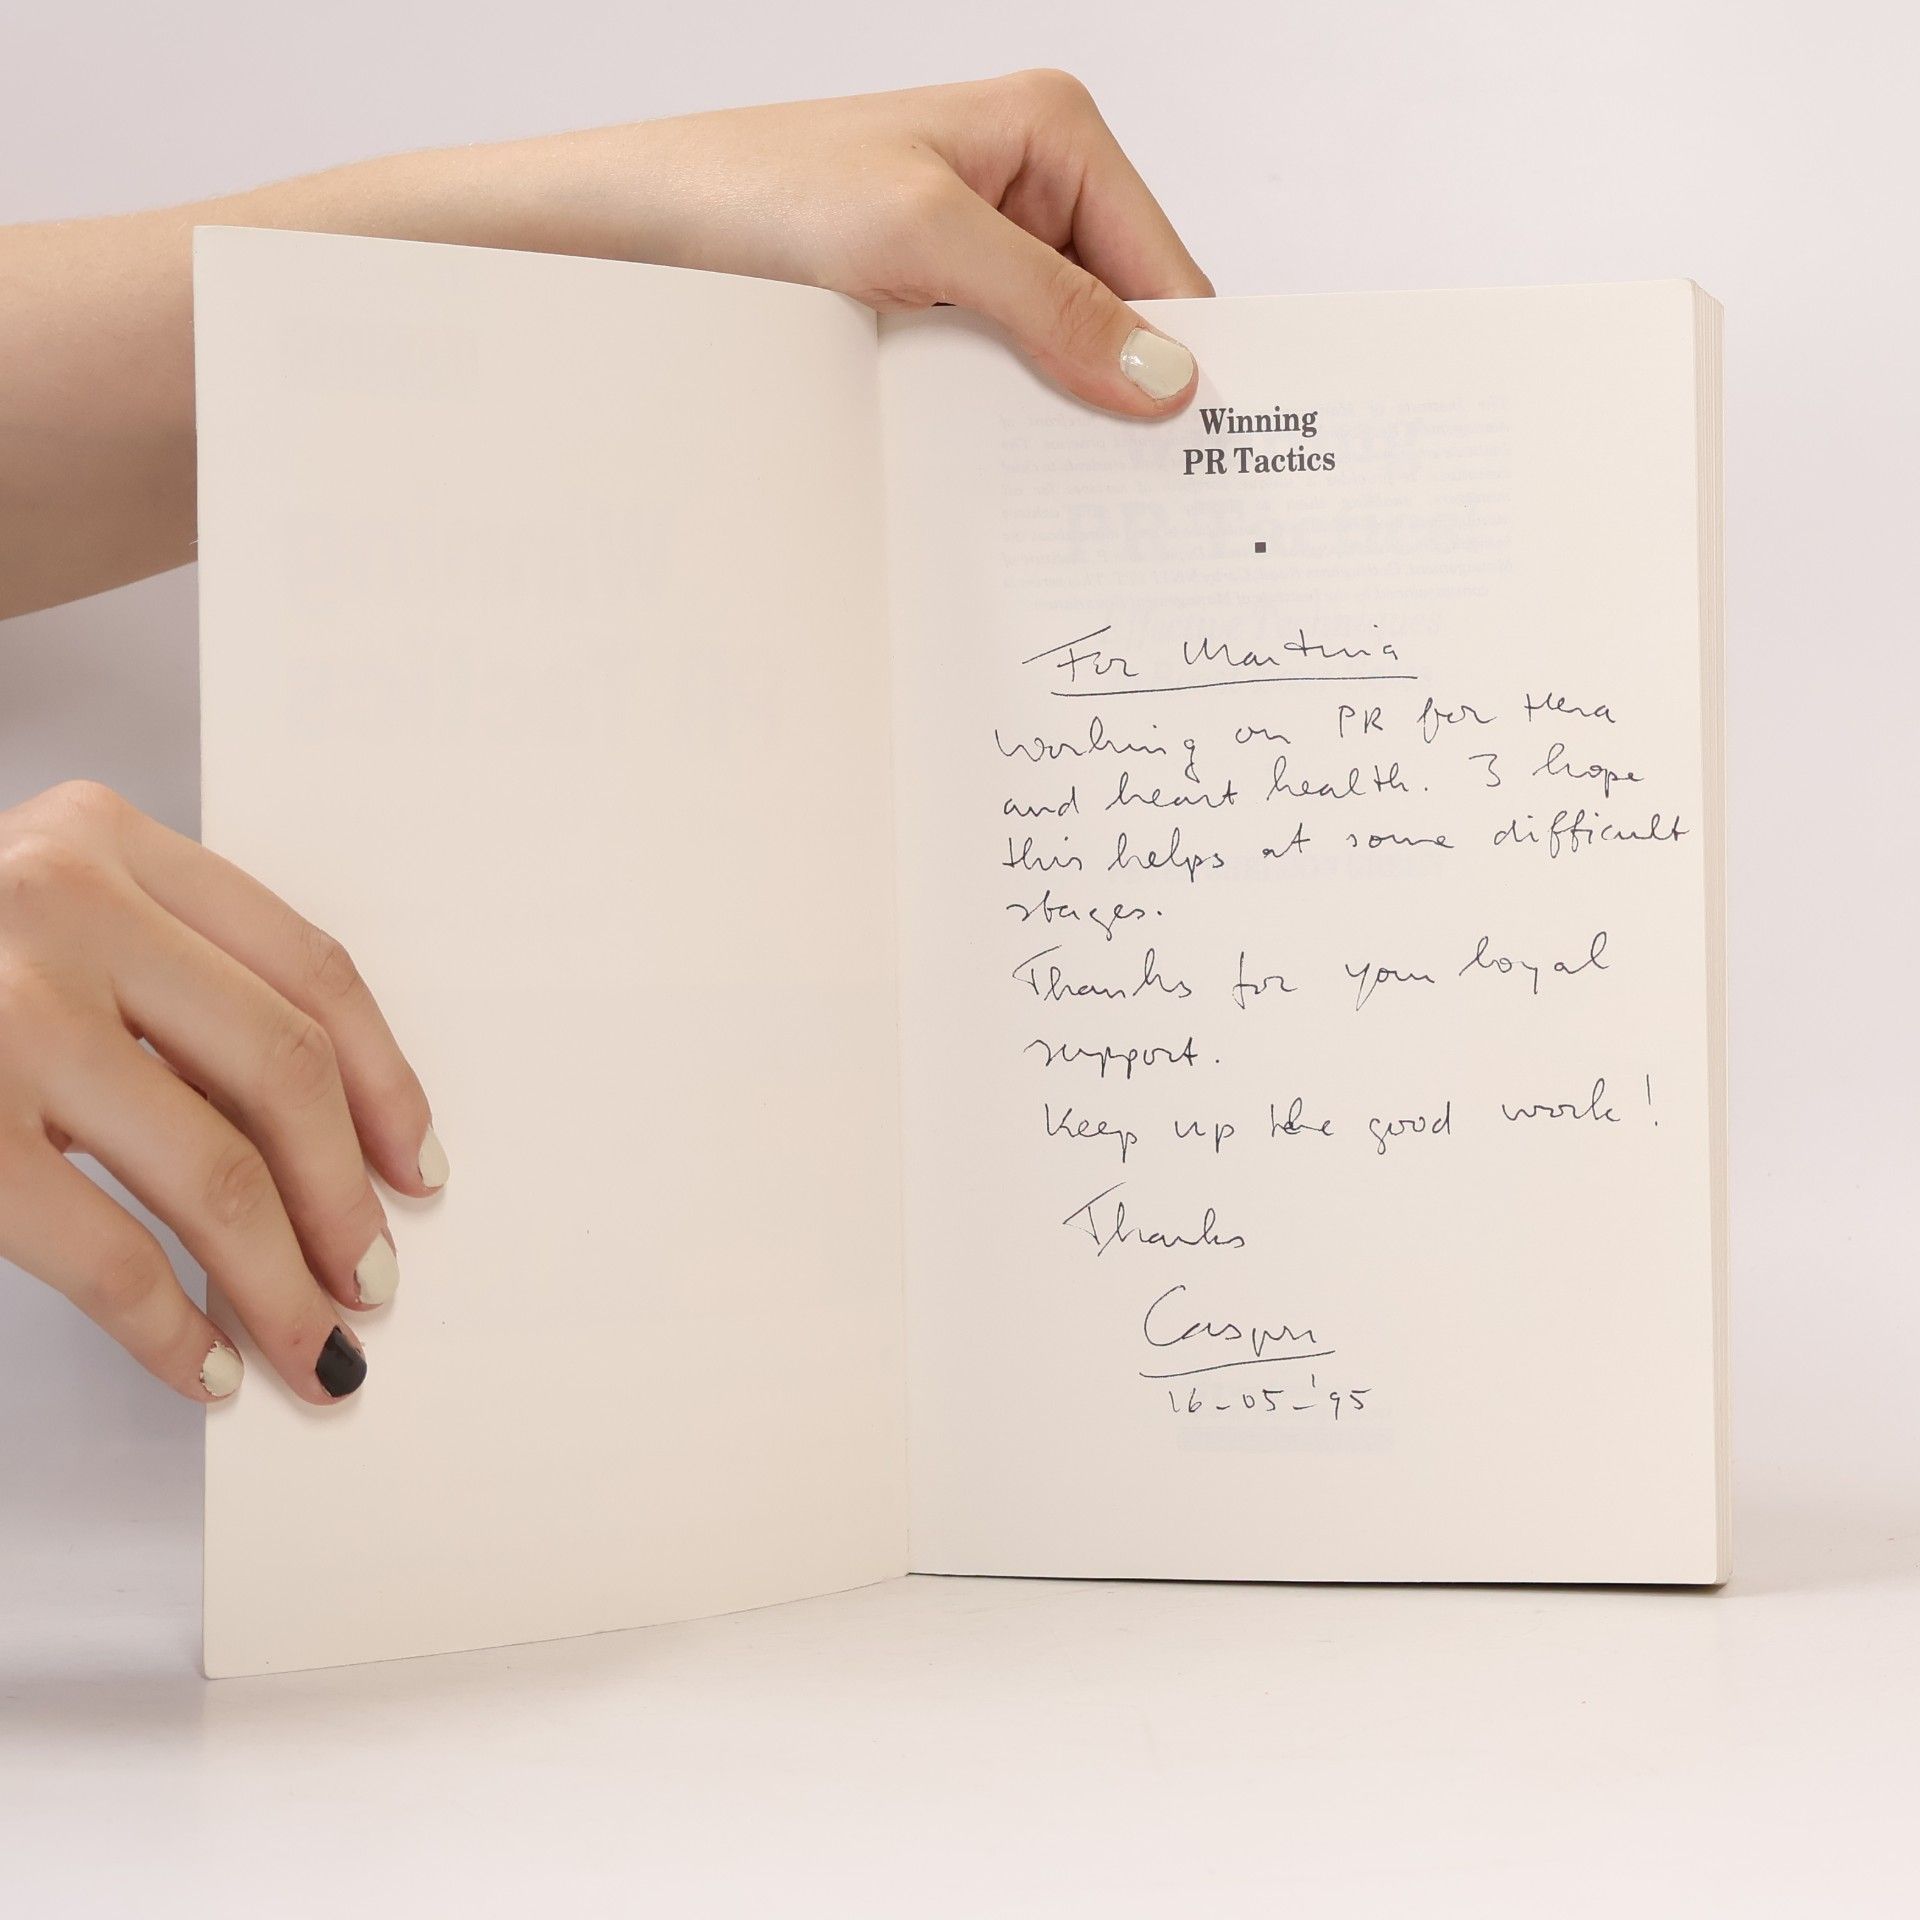 Winning
PR Tactics
For Martina
Working on PR for Hera
and heart health. I hope
this helps at some difficult
stages.
Thanks for your loyal
support.
Keep up the good work!
Thanks
16-05-'95